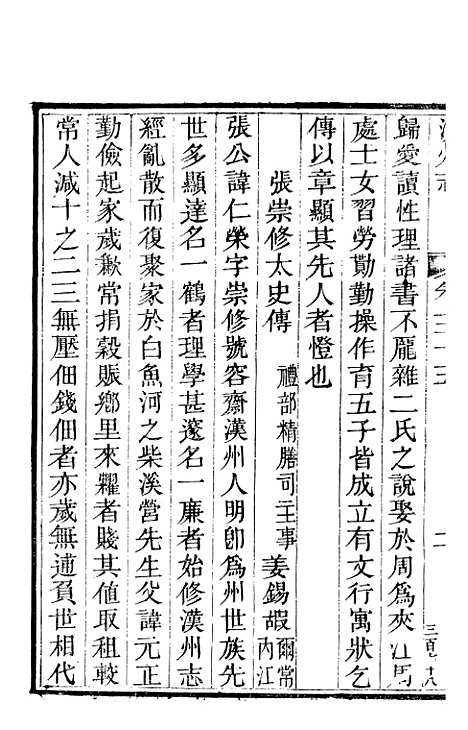 歸愛讀性理諸書不厖雜二氏之說娶於周爲夾江馬
處士女習勞勩勤操作育五子皆成立有文行寓狀乞
傳以章顯其先人者憕也
張崇修太史傳 禮部精膳司主事姜錫嘏爾常內江
張公諱仁榮字崇修號容齋漢州人明卽爲州世族先
世多顯達名一鶴者理學甚邃名一廉者始修漢州志
經亂散而復聚家於白魚河之柴溪營先生父諱元正
勤儉起家歲歉常捐穀賑鄉里來糴者賤其值取租較
常人減十之二三無壓佃錢佃者亦歲無逋負世相代